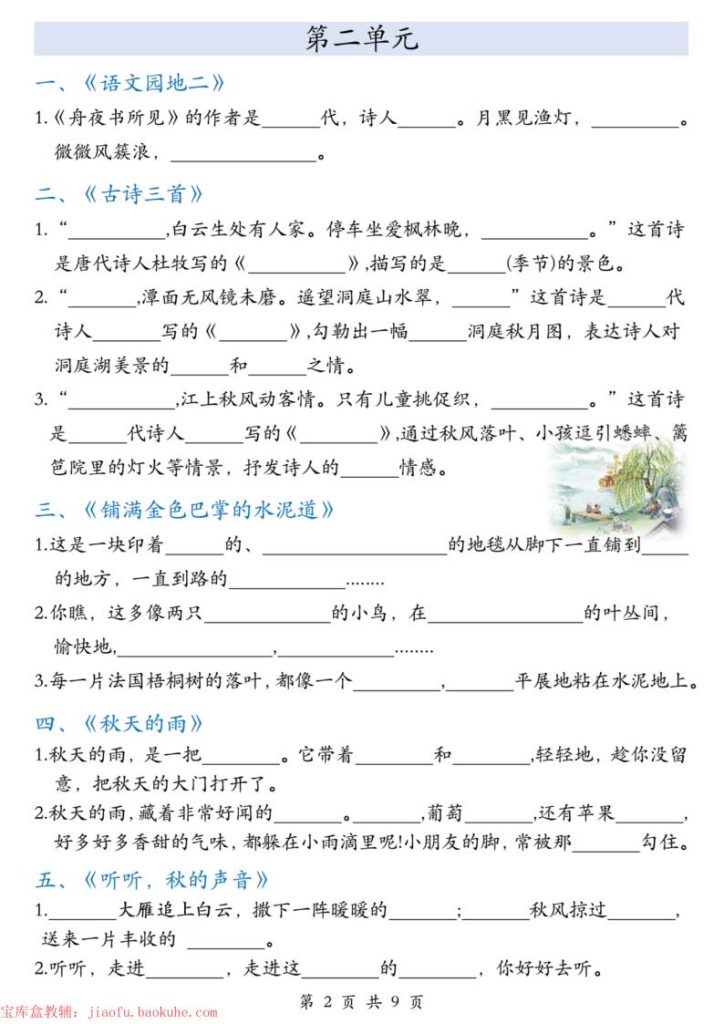 第二单元
一、《语文园地二》
1.《舟夜书所见》的作者是______代，诗人______。月黑见渔灯，_________。
微微风簇浪，_______________。
二、《古诗三首》
1.“__________,白云生处有人家。停车坐爱枫林晚，___________。”这首诗
是唐代诗人杜牧写的《__________》,描写的是______(季节)的景色。
2.“_______,潭面无风镜未磨。遥望洞庭山水翠，______”这首诗是______代
诗人_______写的《_______》,勾勒出一幅______洞庭秋月图，表达诗人对
洞庭湖美景的______和______之情。
3.“___________,江上秋风动客情。只有儿童挑促织，__________。”这首诗
是______代诗人______写的《________》,通过秋风落叶、小孩逗引蟋蟀、篱
笆院里的灯火等情景，抒发诗人的______情感。
三、《铺满金色巴掌的水泥道》
1.这是一块印着______的、___________________的地毯从脚下一直铺到_____
的地方，一直到路的____________........
2.你瞧，这多像两只_____________的小鸟，在________________的叶丛间，
愉快地,________________,____________........
3.每一片法国梧桐树的落叶，都像一个_________,_______平展地粘在水泥地上。
四、《秋天的雨》
1.秋天的雨，是一把________。它带着________和________,轻轻地，趁你没留
意，把秋天的大门打开了。
2.秋天的雨,藏着非常好闻的_______。_______,葡萄_______,还有苹果_______,
好多好多香甜的气味，都躲在小雨滴里呢!小朋友的脚，常被那_______勾住。
五、《听听，秋的声音》
1._______大雁追上白云，撒下一阵暖暖的_______;_______秋风掠过_______,
送来一片丰收的 ________。
2.听听，走进________，走进这________的________，你好好去听。
第 2 页 共 9 页
宝库盒教辅：jiaofu.baokuhe.com